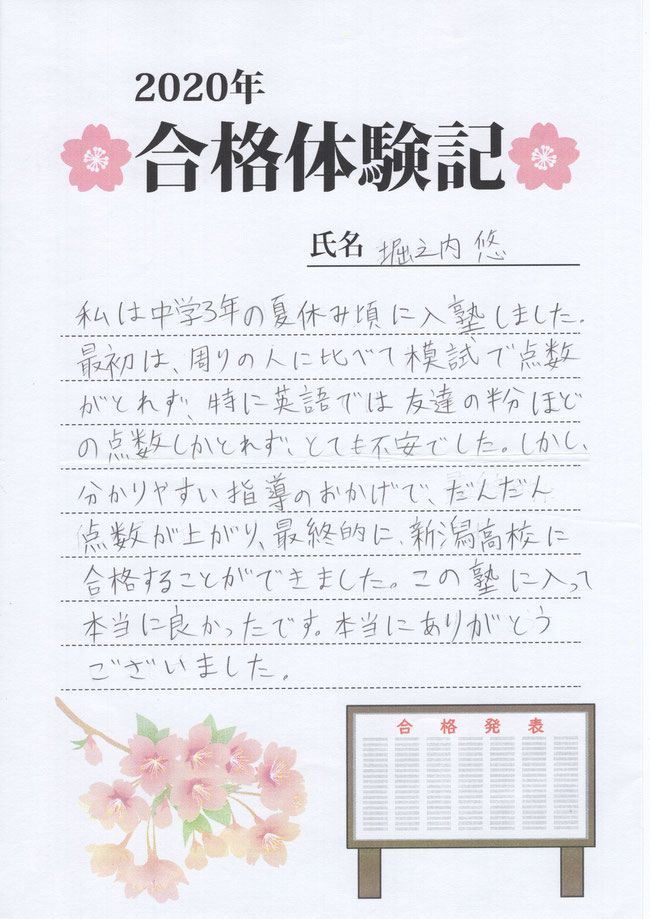 2020年
合格体験記
氏名 堀之内 悠
私は中学3年の夏休み頃に入塾しました。
最初は、周りの人に比べて模試で点数
がとれず、特に英語では友達の半分ほど
の点数しかとれず、とても不安でした。しかし、
分かりやすい指導のおかげで、だんだん
点数が上がり、最終的に、新潟高校に
合格することができました。この塾に入って
本当に良かったです。本当にありがとう
ございました。
合格発表